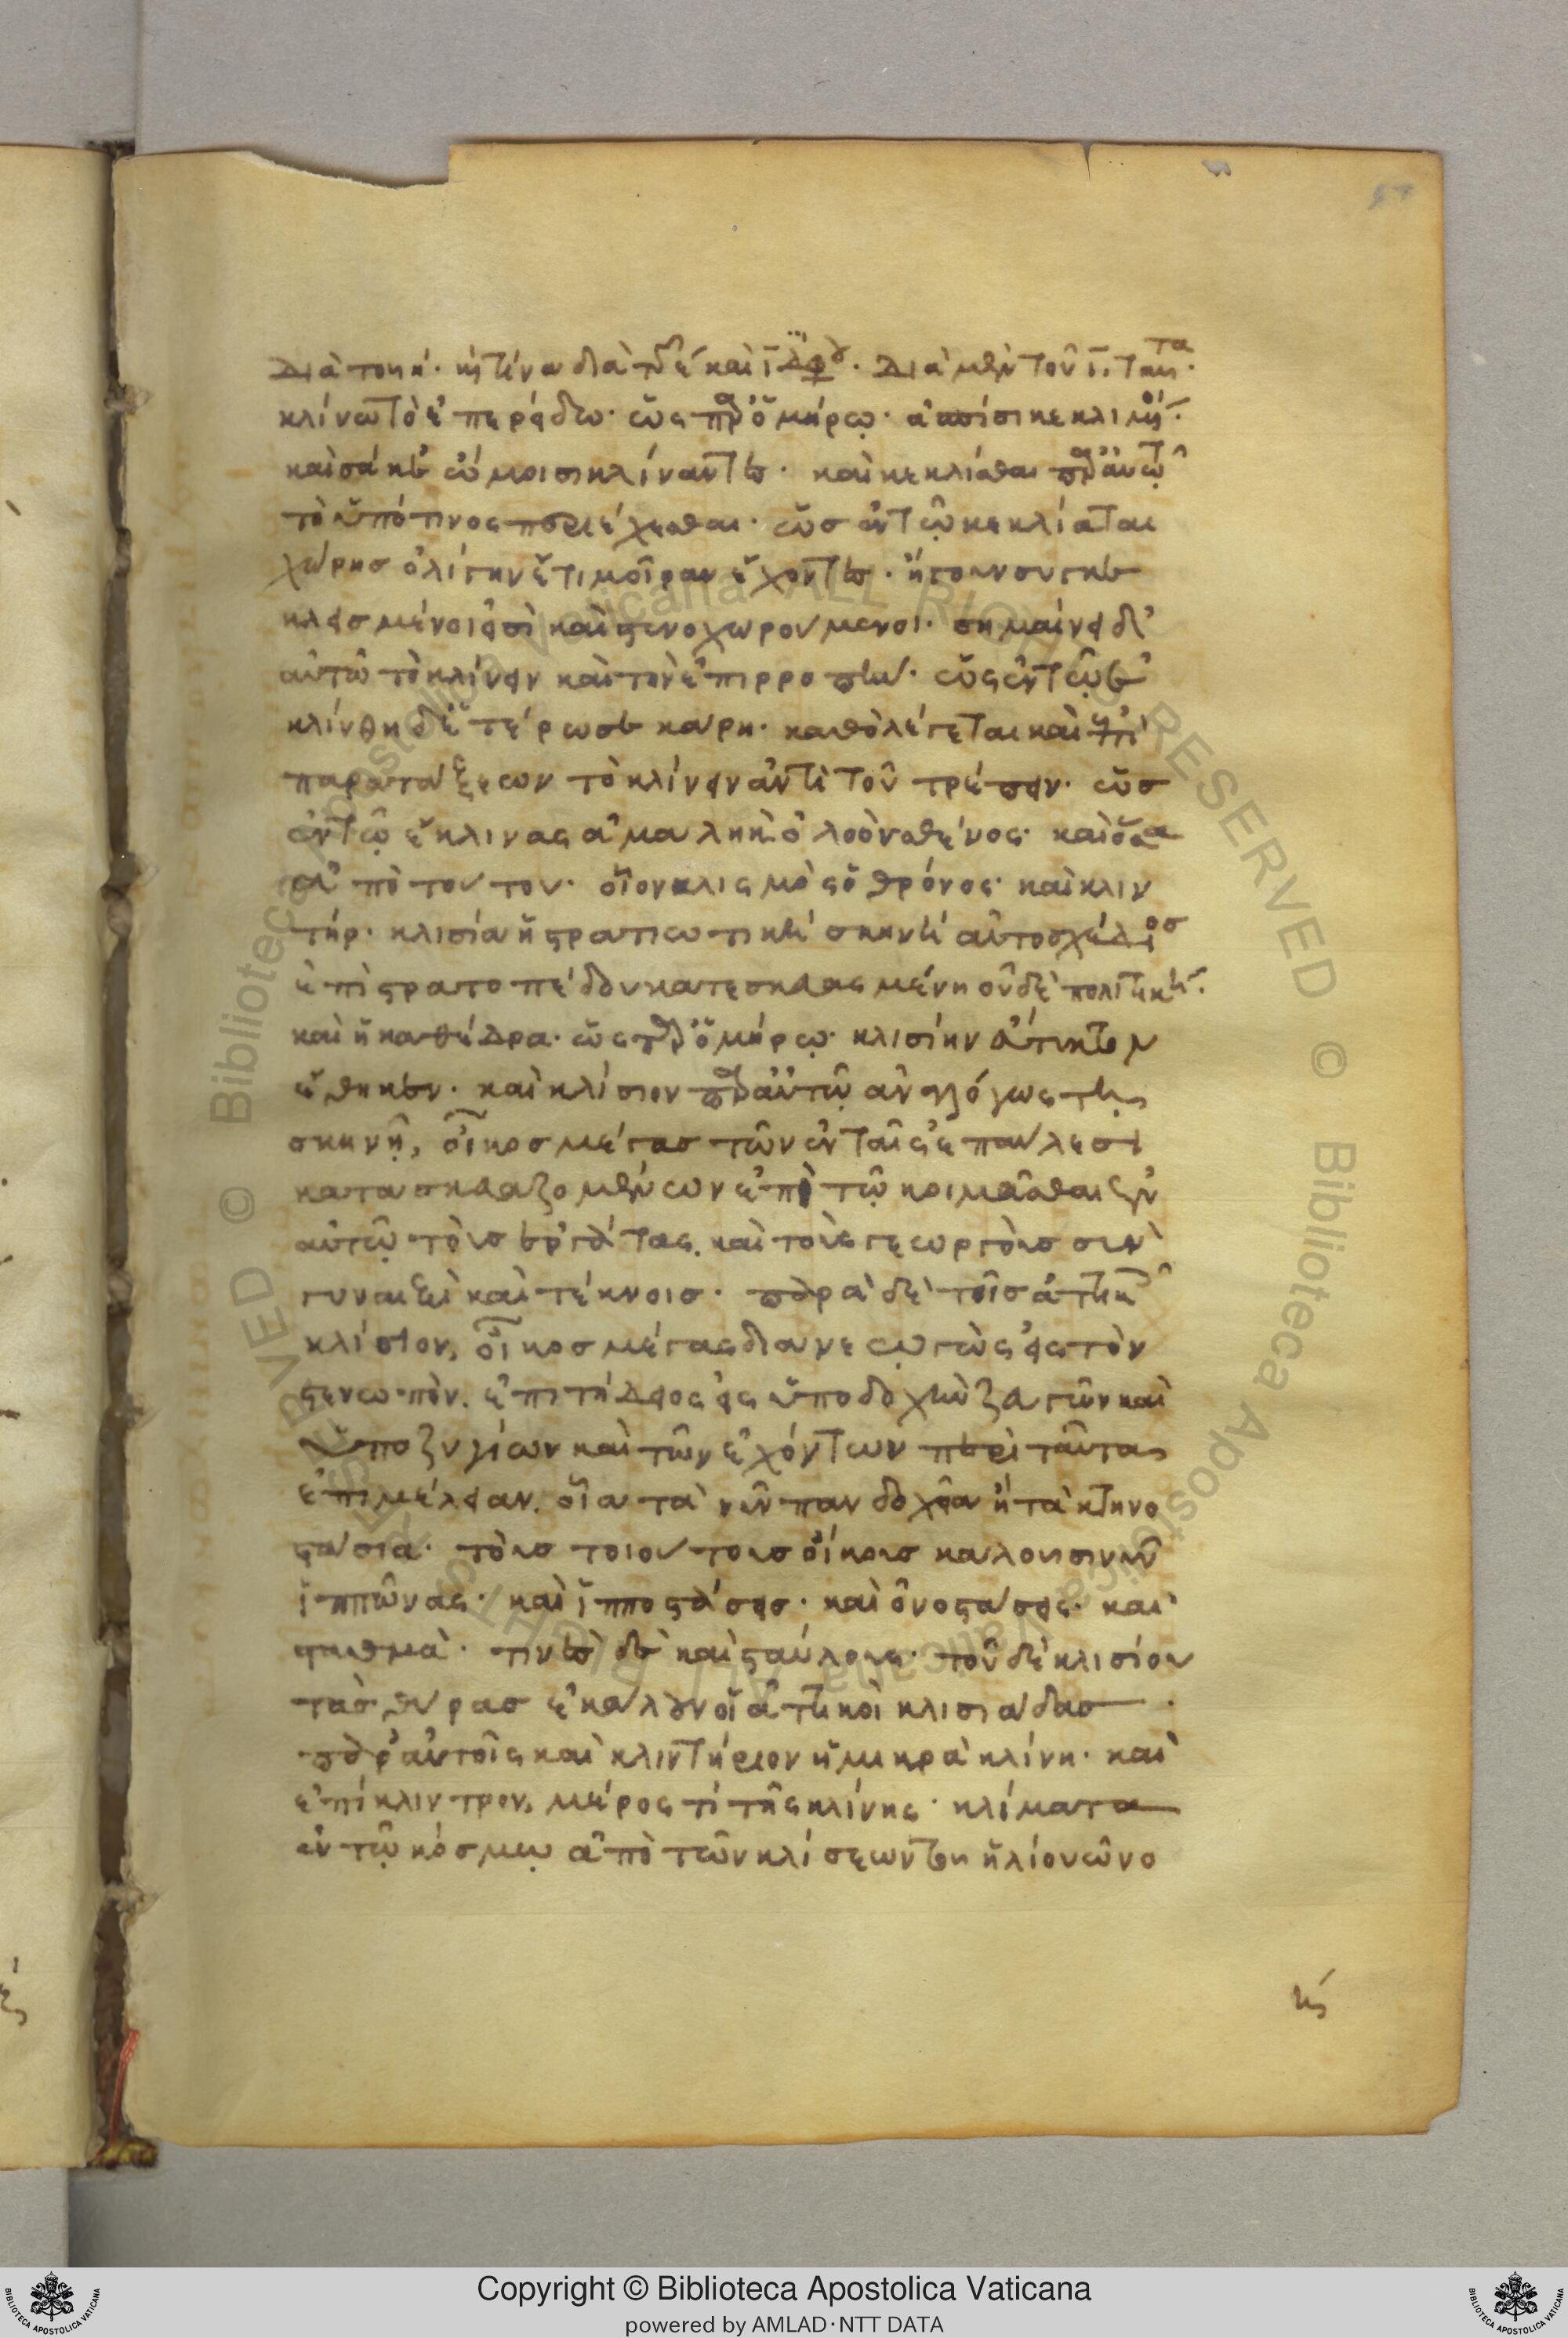 διὰ τοῦ η· ἢ τίνα διὰ τῆς ε καὶ ι διφ. διὰ μὲν τοῦ ι, ταῦτα·
κλίνω τὸ ἐπερείδω· ὡς παρ' ὁμήρῳ· ἀσπίσι κεκλιμένοι·
καὶ σάκε' ὤμοισι κλίναντες· καὶ κεκλίσθαι παρ' αὐτῷ
τὸ ὑπό τινος περιέχεσθαι· ὡς ἐν τῷ κεκλίαται
χώρης ὀλίγην ἔτι μοῖραν ἔχοντες· ἤγουν συγκε
κλεισμένοι εἰσὶ καὶ στενοχωρούμενοι· σημαίνει δ'
αὐτῶ τὸ κλίνειν καὶ τὸν ἐπιρροπῆν· ὡς ἐν τῷ
κλίνθη δ' ἑτέρωσε κάρη· καθὸ λέγεται καὶ ἐπὶ
παρατάξεων τὸ κλίνειν ἀντὶ τοῦ τρέπειν· ὡς
ἐν τῷ ἔκλινας ἀμαλὴκ ὁλοὸν σθένος· καὶ ὅσα
ἀπὸ τούτου· οἷον κλισμὸς ὁ θρόνος· καὶ κλιν
τήρ· κλισία ἡ στρατιωτικὴ σκηνὴ αὐτοσχέδιος
ἐπὶ στρατοπέδου κατεσκευασμένη οὐδὲ πολιτική·
καὶ ἡ καθέδρα· ὡς παρ' ὁμήρῳ· κλισίην
ἔθηκεν· καὶ κλίσιον παρ' αὐτῷ ἀναλόγως τῆ
σκηνῆ, οἶκος μέγας τῶν ἐν ταῖς ἐπαύλεσι
κατασκευαζομένων ἐπὶ τῷ κοιμᾶσθαι ἐν
αὐτῷ τοὺς ἐργάτας, καὶ τοὺς γεωργοὺς σὺν
γυναιξὶ καὶ τέκνοις· παρὰ δὲ τοῖς ἀττικοῖς
κλίσιον, οἶκος μέγας διανεῳγὼς εἰς τὸν
στενωπόν, ἐπιτήδειος εἰς ὑποδοχὴν ζευγῶν καὶ
ὑποζυγίων καὶ τῶν ἐχόντων περὶ ταῦτα
ἐπιμέλειαν, οἷα τὰ νῦν πανδοχεῖα ἢ τὰ κτηνο
στάσια· τοὺς τοιούτους οἴκους καλοῦσι νῦν
ἱππῶνας· καὶ ἱπποστάσεις· καὶ ὀνοστάσεις· καὶ
σταθμὰ· τινὲς δὲ καὶ σταύλους· τοῦ δὲ κλισίου
τὰς θύρας ἐκάλουν οἱ ἀττικοὶ κλισιάδας ·
παρ' αὐτοῖς καὶ κλιντήριον ἡ μικρὰ κλίνη· καὶ
ἐπίκλιντρον, μέρος τὶ τῆς κλίνης· κλίματα
ἐν τῷ κόσμῳ ἀπὸ τῶν κλίσεων τοῦ ἡλίου ὧν ὁ
Copyright © Biblioteca Apostolica Vaticana
powered by AMLAD·NTT DATA